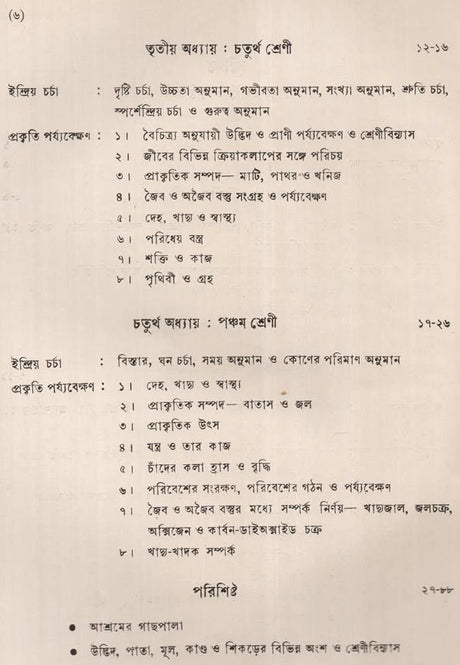 (৬)
তৃতীয় অধ্যায় : চতুর্থ শ্রেণী ১২-১৬
ইন্দ্রিয় চর্চা : দৃষ্টি চর্চা, উচ্চতা অনুমান, গভীরতা অনুমান, সংখ্যা অনুমান, শ্রুতি চর্চা,
স্পর্শেন্দ্রিয় চর্চা ও গুরুত্ব অনুমান
প্রকৃতি পর্য্যবেক্ষণ : ১। বৈচিত্র্য অনুযায়ী উদ্ভিদ ও প্রাণী পর্য্যবেক্ষণ ও শ্রেণীবিন্যাস
২। জীবের বিভিন্ন ক্রিয়াকলাপের সঙ্গে পরিচয়
৩। প্রাকৃতিক সম্পদ— মাটি, পাথর ও খনিজ
৪। জৈব ও অজৈব বস্তু সংগ্রহ ও পর্য্যবেক্ষণ
৫। দেহ, খাদ্য ও স্বাস্থ্য
৬। পরিধেয় বস্ত্র
৭। শক্তি ও কাজ
৮। পৃথিবী ও গ্রহ
চতুর্থ অধ্যায় : পঞ্চম শ্রেণী ১৭-২৬
ইন্দ্রিয় চর্চা : বিস্তার, ঘন চর্চা, সময় অনুমান ও কোণের পরিমাণ অনুমান
প্রকৃতি পর্য্যবেক্ষণ : ১। দেহ, খাদ্য ও স্বাস্থ্য
২। প্রাকৃতিক সম্পদ— বাতাস ও জল
৩। প্রাকৃতিক উৎস
৪। যন্ত্র ও তার কাজ
৫। চাঁদের কলা হ্রাস ও বৃদ্ধি
৬। পরিবেশের সংরক্ষণ, পরিবেশের গঠন ও পর্য্যবেক্ষণ
৭। জৈব ও অজৈব বস্তুর মধ্যে সম্পর্ক নির্ণয়— খাদ্যজাল, জলচক্র,
অক্সিজেন ও কার্বন-ডাইঅক্সাইড চক্র
৮। খাদ্য-খাদক সম্পর্ক
পরিশিষ্ট ২৭-৮৮
● আশ্রমের গাছপালা
● উদ্ভিদ, পাতা, মূল, কাণ্ড ও শিকড়ের বিভিন্ন অংশ ও শ্রেণীবিন্যাস